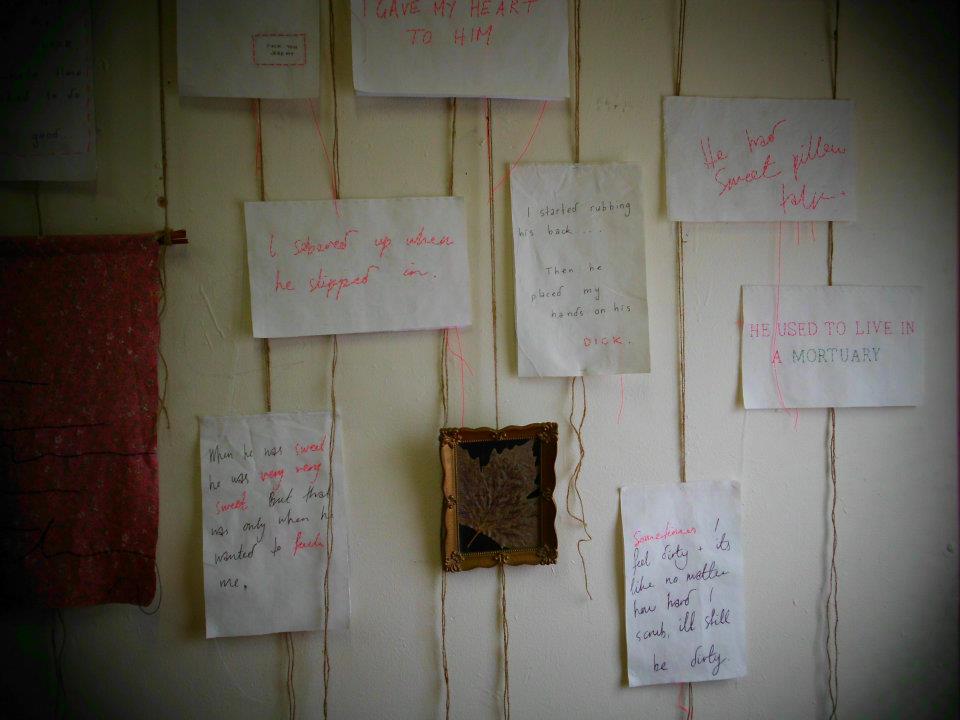 good.
FUCK YOU
JEREMY
I GAVE MY HEART
TO HIM
He had
Sweet pillow
talk.
I sobered up when
he slipped in.
I started rubbing
his back ....
Then he
placed my
hands on his
DICK.
HE USED TO LIVE IN
A MORTUARY
When he was sweet
he was very very
sweet. But that
was only when he
wanted to fuck
me.
Sometimes I
feel dirty + its
like no matter
how hard I
scrub, ill still
be dirty.